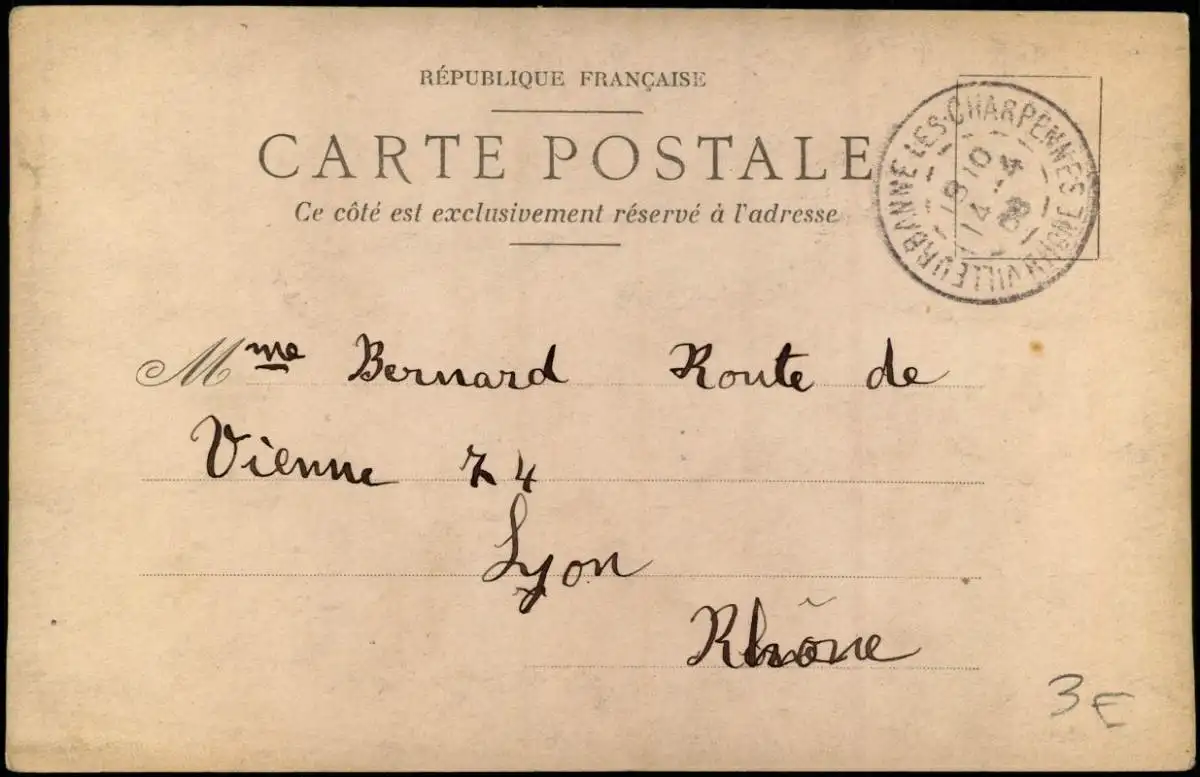 RÉPUBLIQUE FRANÇAISE
CARTE POSTALE
Ce côté est exclusivement réservé à l'adresse
VILLEURBANNE LES-CHARPENNES RHONE
Mme Bernard Route de
Vienne 74
Lyon
Rhône
3E